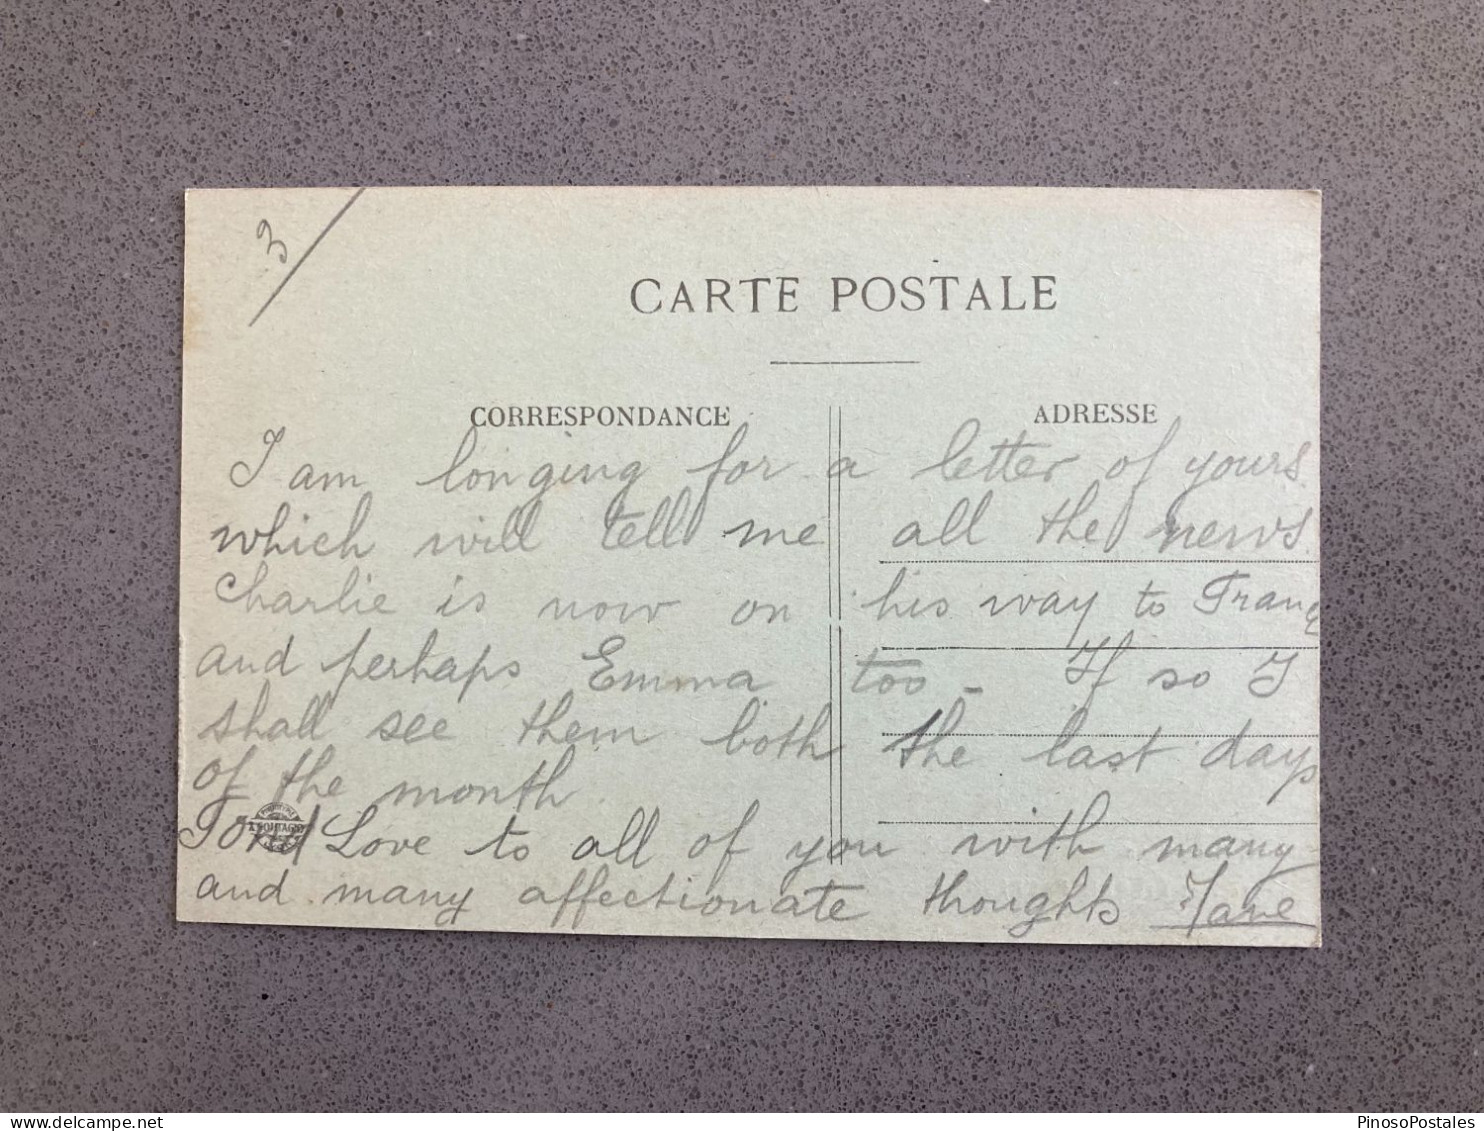 3
CARTE POSTALE
CORRESPONDANCE
ADRESSE
I am longing for a letter of yours
which will tell me all the news.
Charlie is now on his way to Franc
and perhaps Emma too - If so I
shall see them both the last days
of the month.
Love to all of you with many
and many affectionate thoughts
PinosoPostales